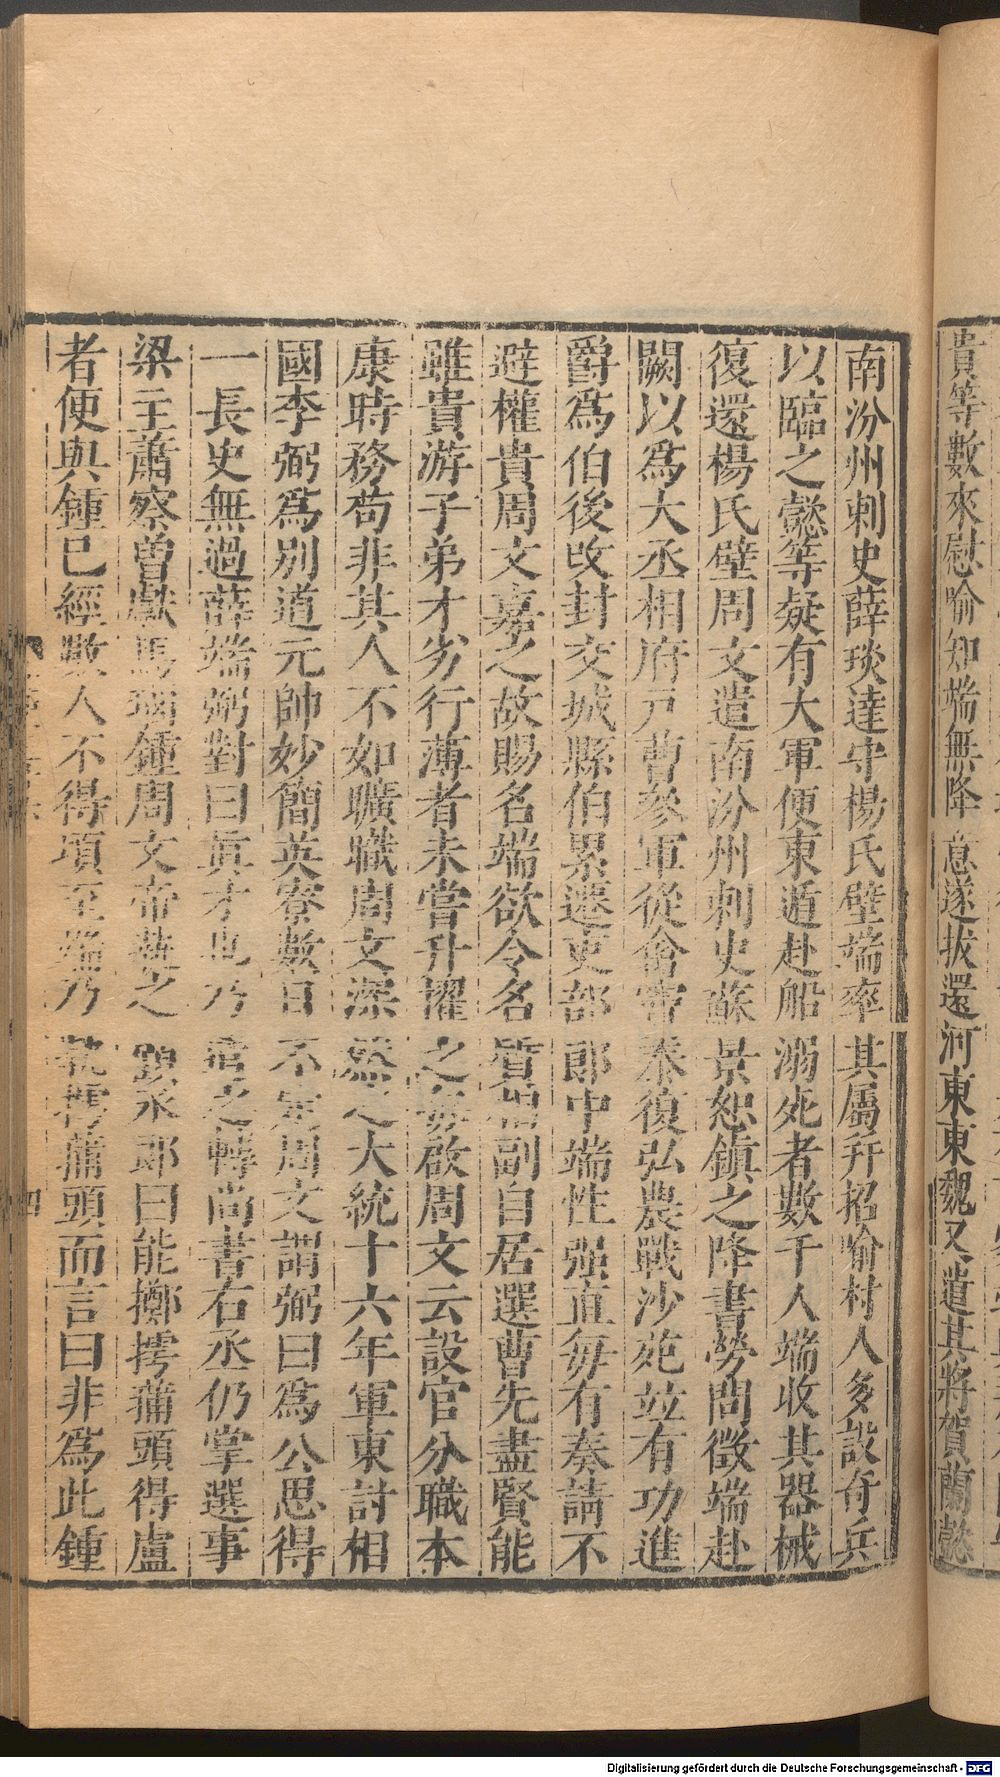 貴等數來慰喻知端無降意遂拔還河東東魏又遣其將賀蘭懿
南汾州刺史薛琰達守楊氏壁端率其屬幷招喻村人多設奇兵
以臨之懿等疑有大軍便東遁赴船溺死者數千人端收其器械
復還楊氏壁周文遣南汾州刺史蘇景恕鎮之降書勞問徵端赴
闕以爲大丞相府戸曹參軍從禽竇泰復弘農戰沙苑並有功進
爵爲伯後改封交城縣伯累遷吏部郎中端性强直毎有奏請不
避權貴周文嘉之故賜名端欲令名質相副自居選曹先盡賢能
雖貴游子弟才劣行薄者未嘗升擢之毎啟周文云設官分職本
康時務苟非其人不如曠職周文深然之大統十六年軍東討相
國李弼爲別道元帥妙簡英寮數日不定周文謂弼曰爲公思得
一長史無過薛端弼對曰眞才也乃遣之轉尚書右丞仍掌選事
梁主蕭察曾獻馬瑙鍾周文帝執之顧丞郎曰能擲摴蒱頭得盧
者便與鍾已經數人不得頃至端乃執摴蒱頭而言曰非爲此鍾
四
Digitalisierung gefördert durch die Deutsche Forschungsgemeinschaft - DFG